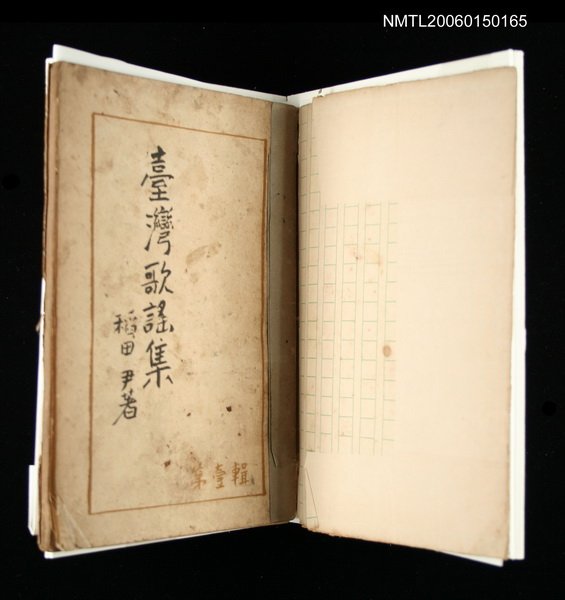 NMTL20060150165
臺灣歌謠集
稻田尹著
第壹輯